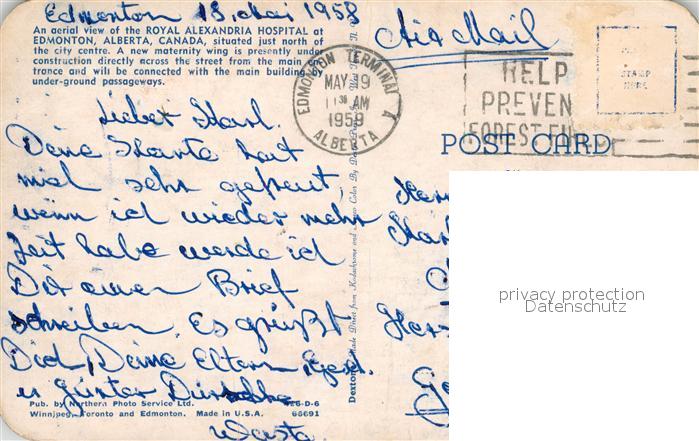 Edmonton 18. Mai 1958
An aerial view of the ROYAL ALEXANDRIA HOSPITAL at
EDMONTON, ALBERTA, CANADA, situated just north of
the city centre. A new maternity wing is presently under
construction directly across the street from the main en-
trance and will be connected with the main building by
under-ground passageways.
Air Mail
EDMONTON TERMINAL A
MAY 19
11 30 AM
1958
ALBERTA
HELP
PREVEN
FOREST FI
STAMP
HERE
POST CARD
Lieber Karl.
Deine Karte hat
mich sehr gefreut,
wenn ich wieder mehr
Zeit habe werde ich
Dir einen Brief
schreiben. Es grüßt
Dich, Deine Eltern,
u Günter
Her
Kar
privacy protection
Datenschutz
Pub. by Northern Photo Service Ltd.
Winnipeg, Toronto and Edmonton. Made in U.S.A.
66691